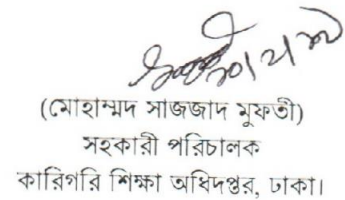 (মোহাম্মদ সাজজাদ মুফতী)
সহকারী পরিচালক
কারিগরি শিক্ষা অধিদপ্তর, ঢাকা।